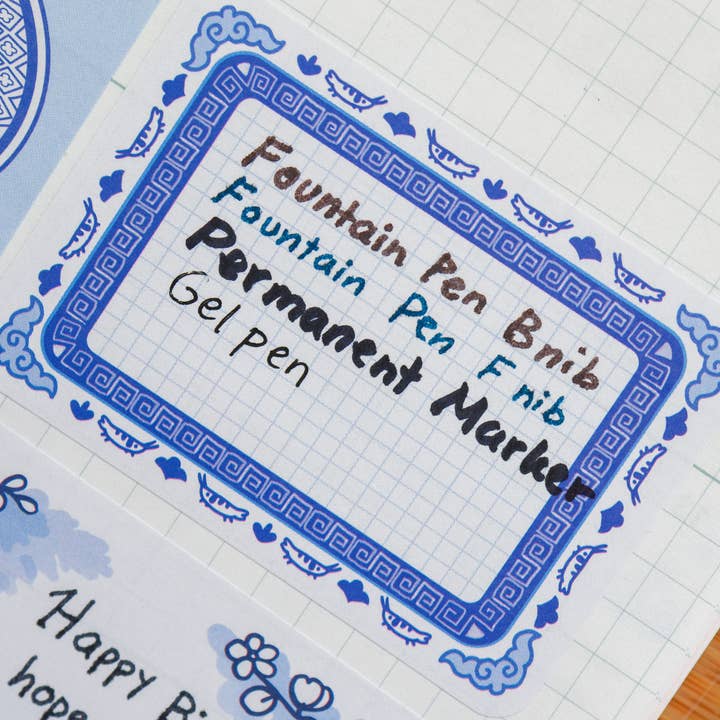 Fountain Pen Bnib
Fountain Pen F nib
Permanent Marker
Gel pen
Happy Bi
hope